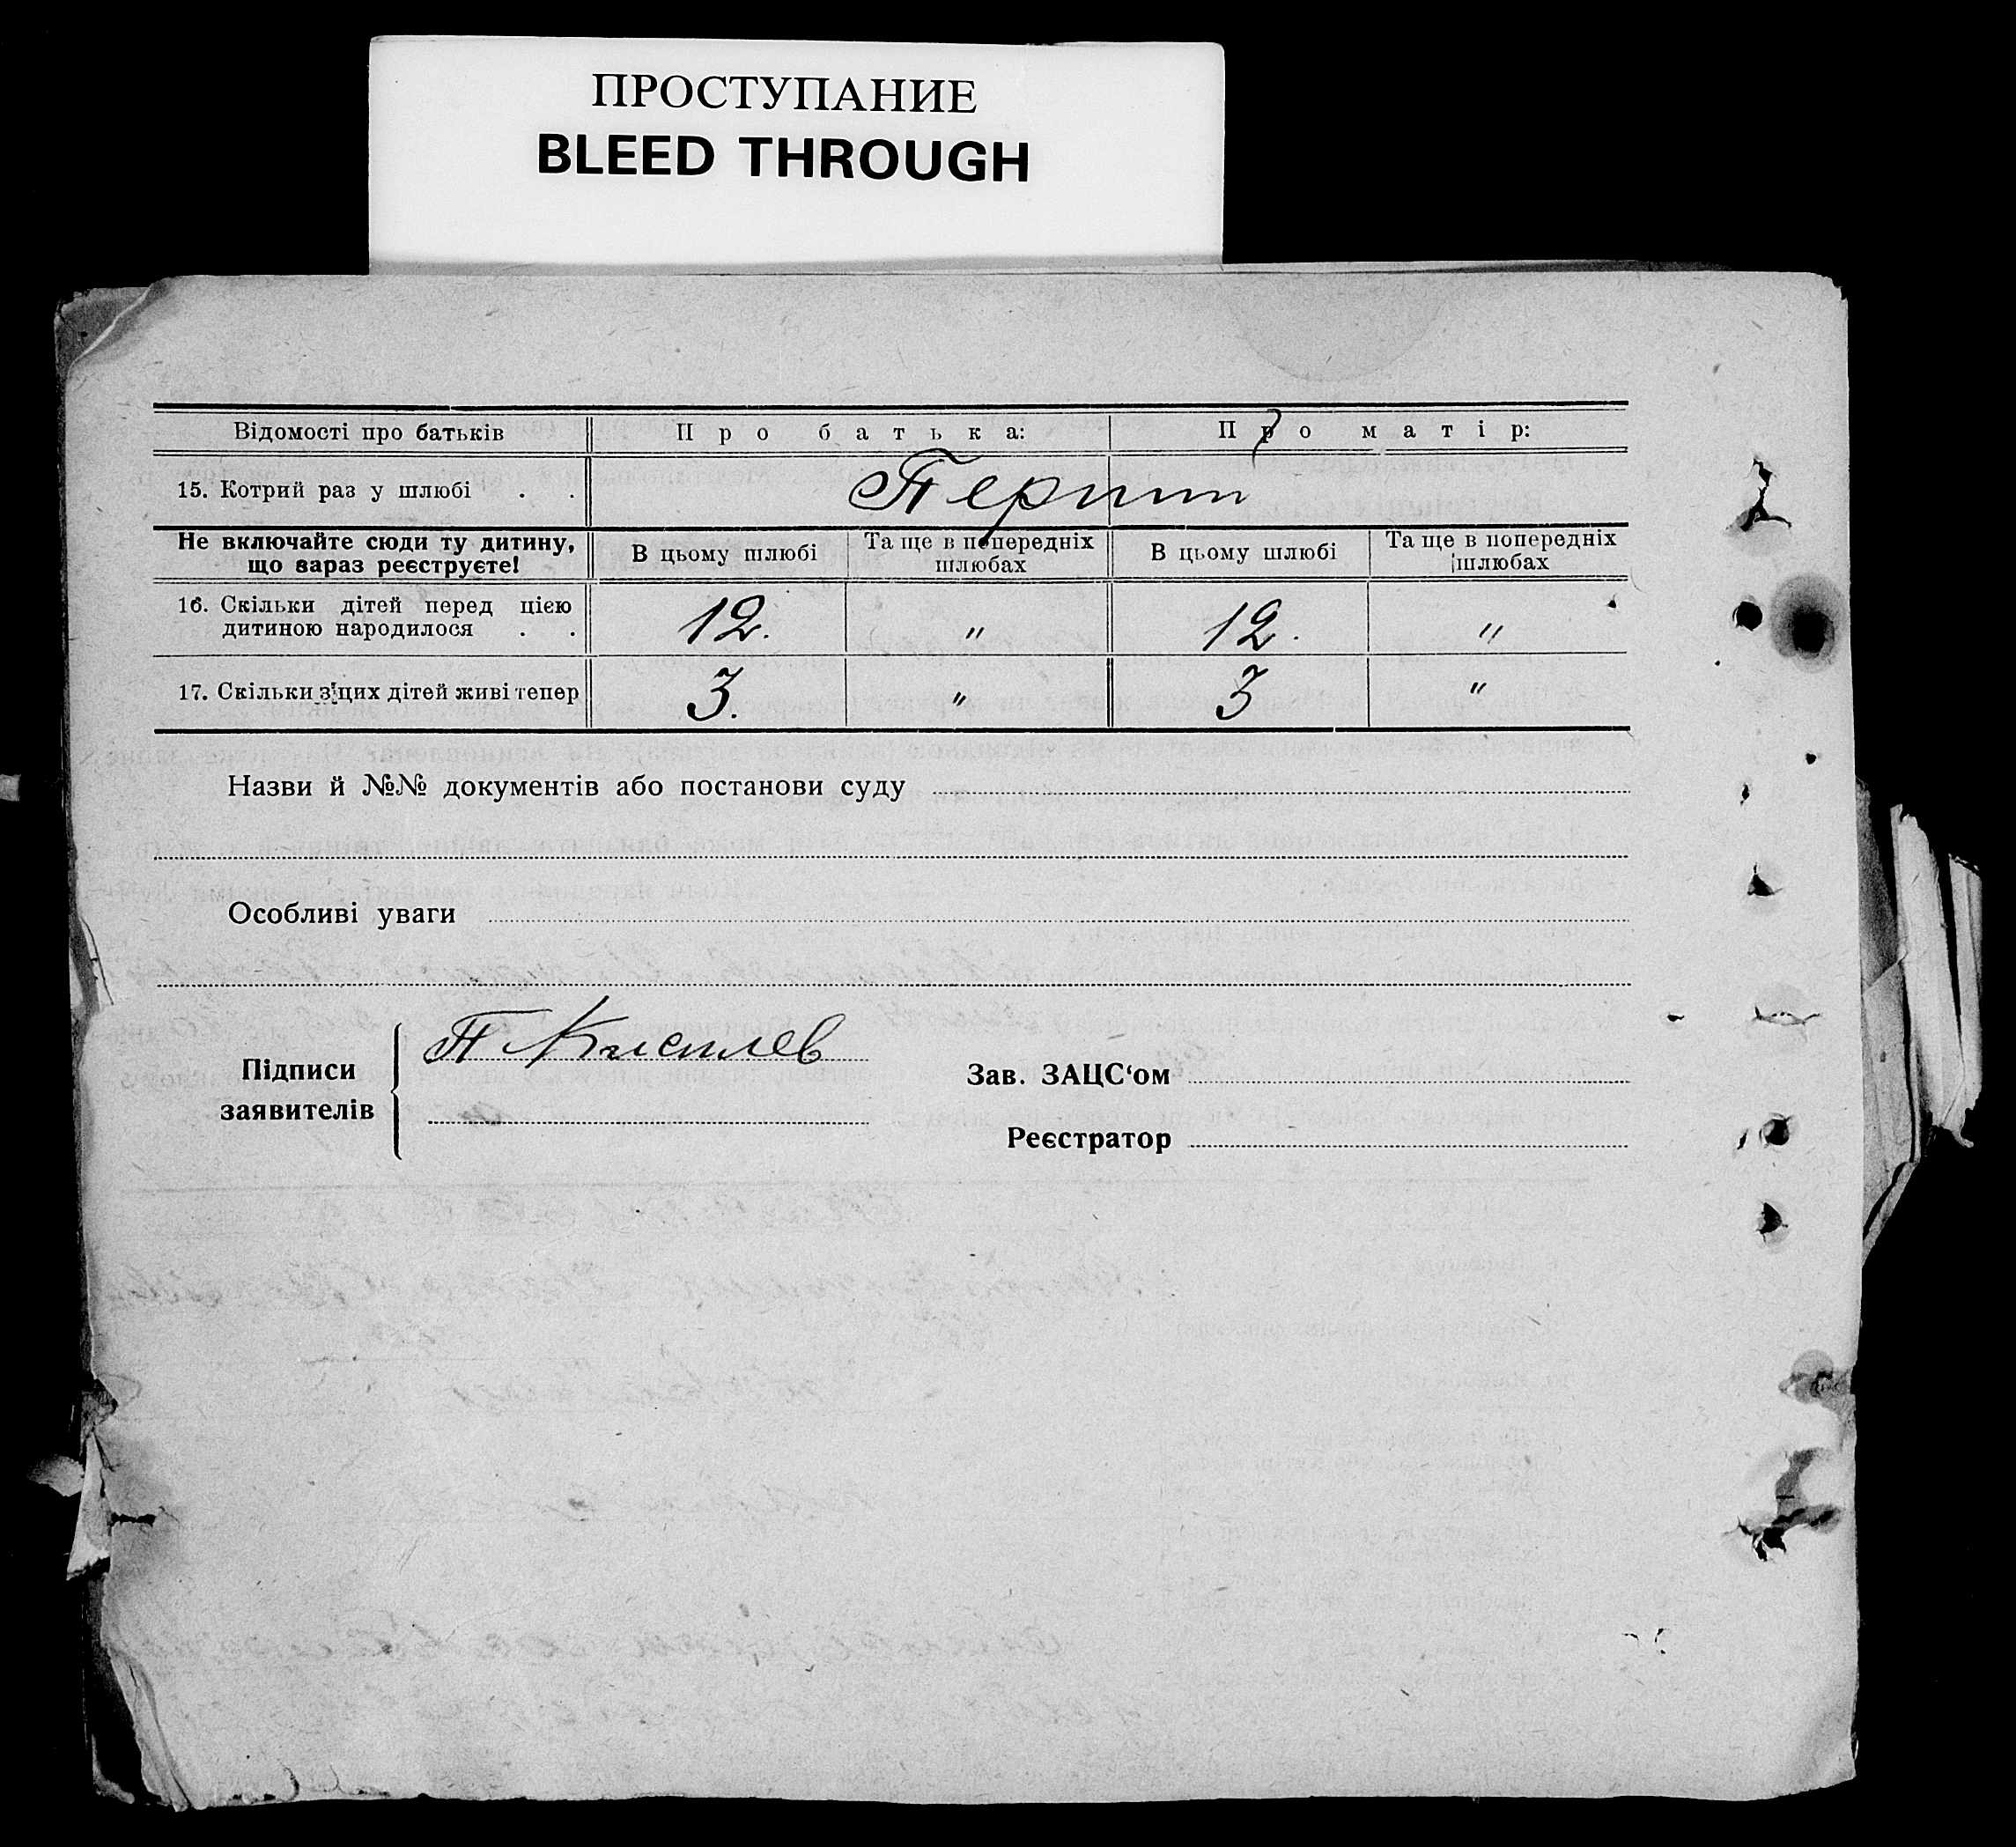 ПРОСТУПАНИЕ
BLEED THROUGH
Відомості про батьків Про батька: Про матір:
15. Котрий раз у шлюбі . . Перший
Не включайте сюди ту дитину, що зараз реєструєте! В цьому шлюбі Та ще в попередніх шлюбах В цьому шлюбі Та ще в попередніх шлюбах
16. Скільки дітей перед цією
дитиною народилося . . 12. " 12. "
17. Скільки з цих дітей живі тепер 3. " 3 "
Назви й №№ документів або постанови суду
Особливі уваги
Підписи
заявителів
П Киселев
Зав. ЗАЦС‘ом
Реєстратор